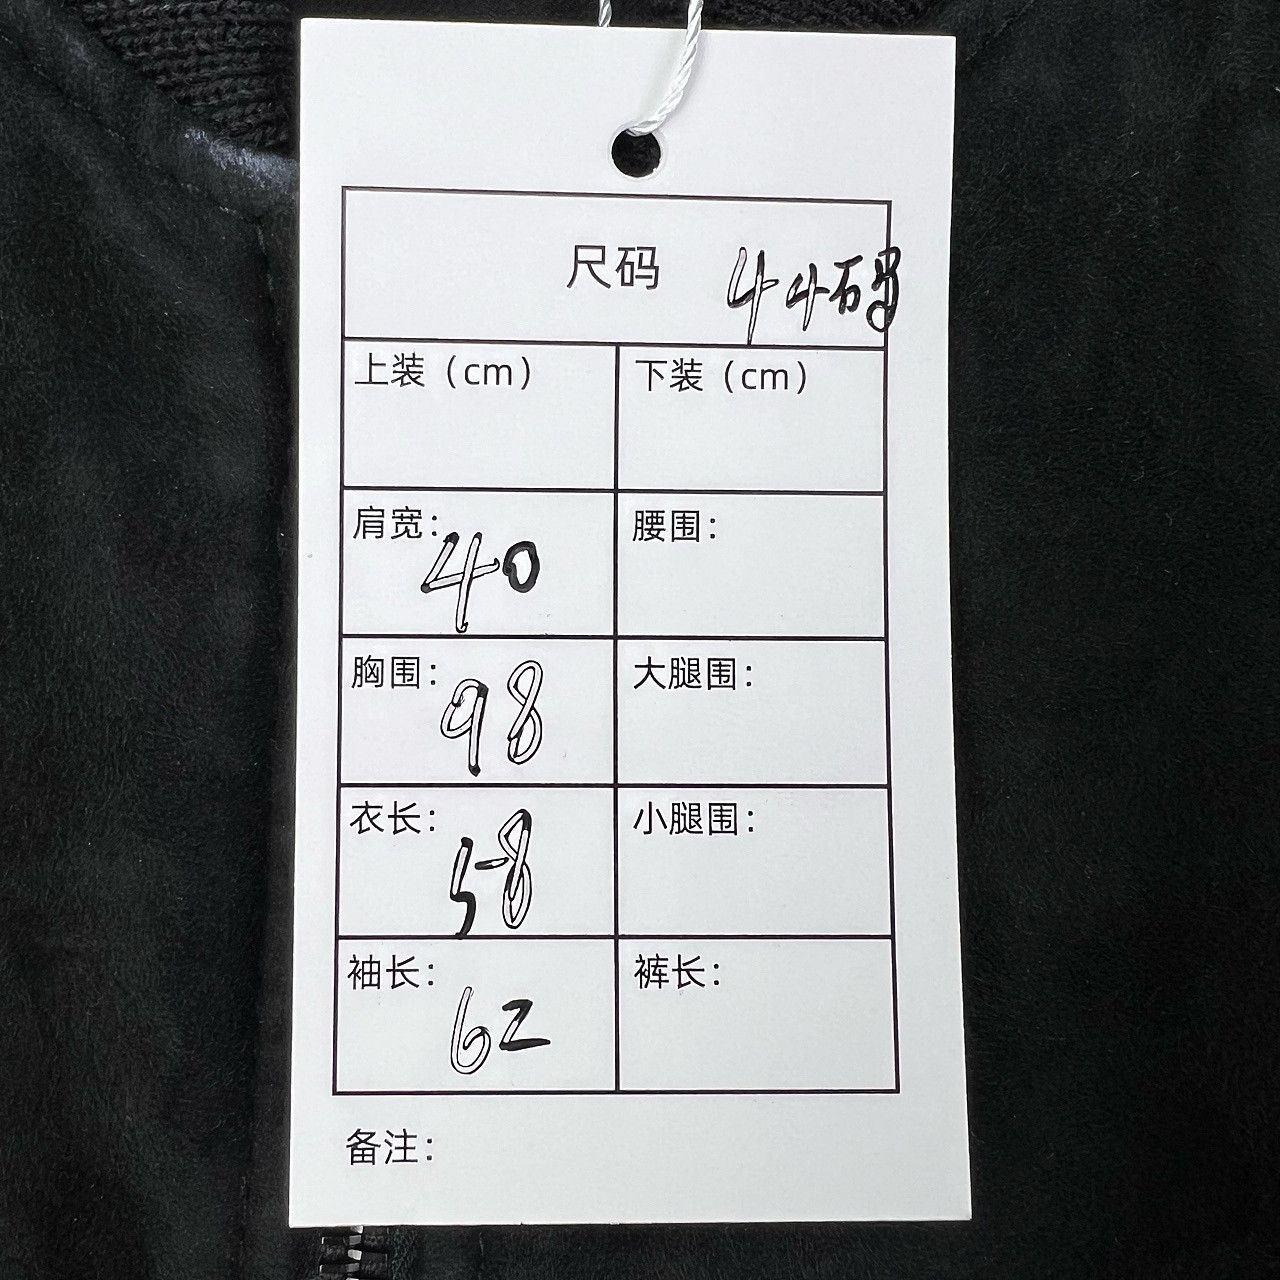 尺码 44码
上装（cm） 下装（cm）
肩宽：40 腰围：
胸围：98 大腿围：
衣长：58 小腿围：
袖长：62 裤长：
备注：